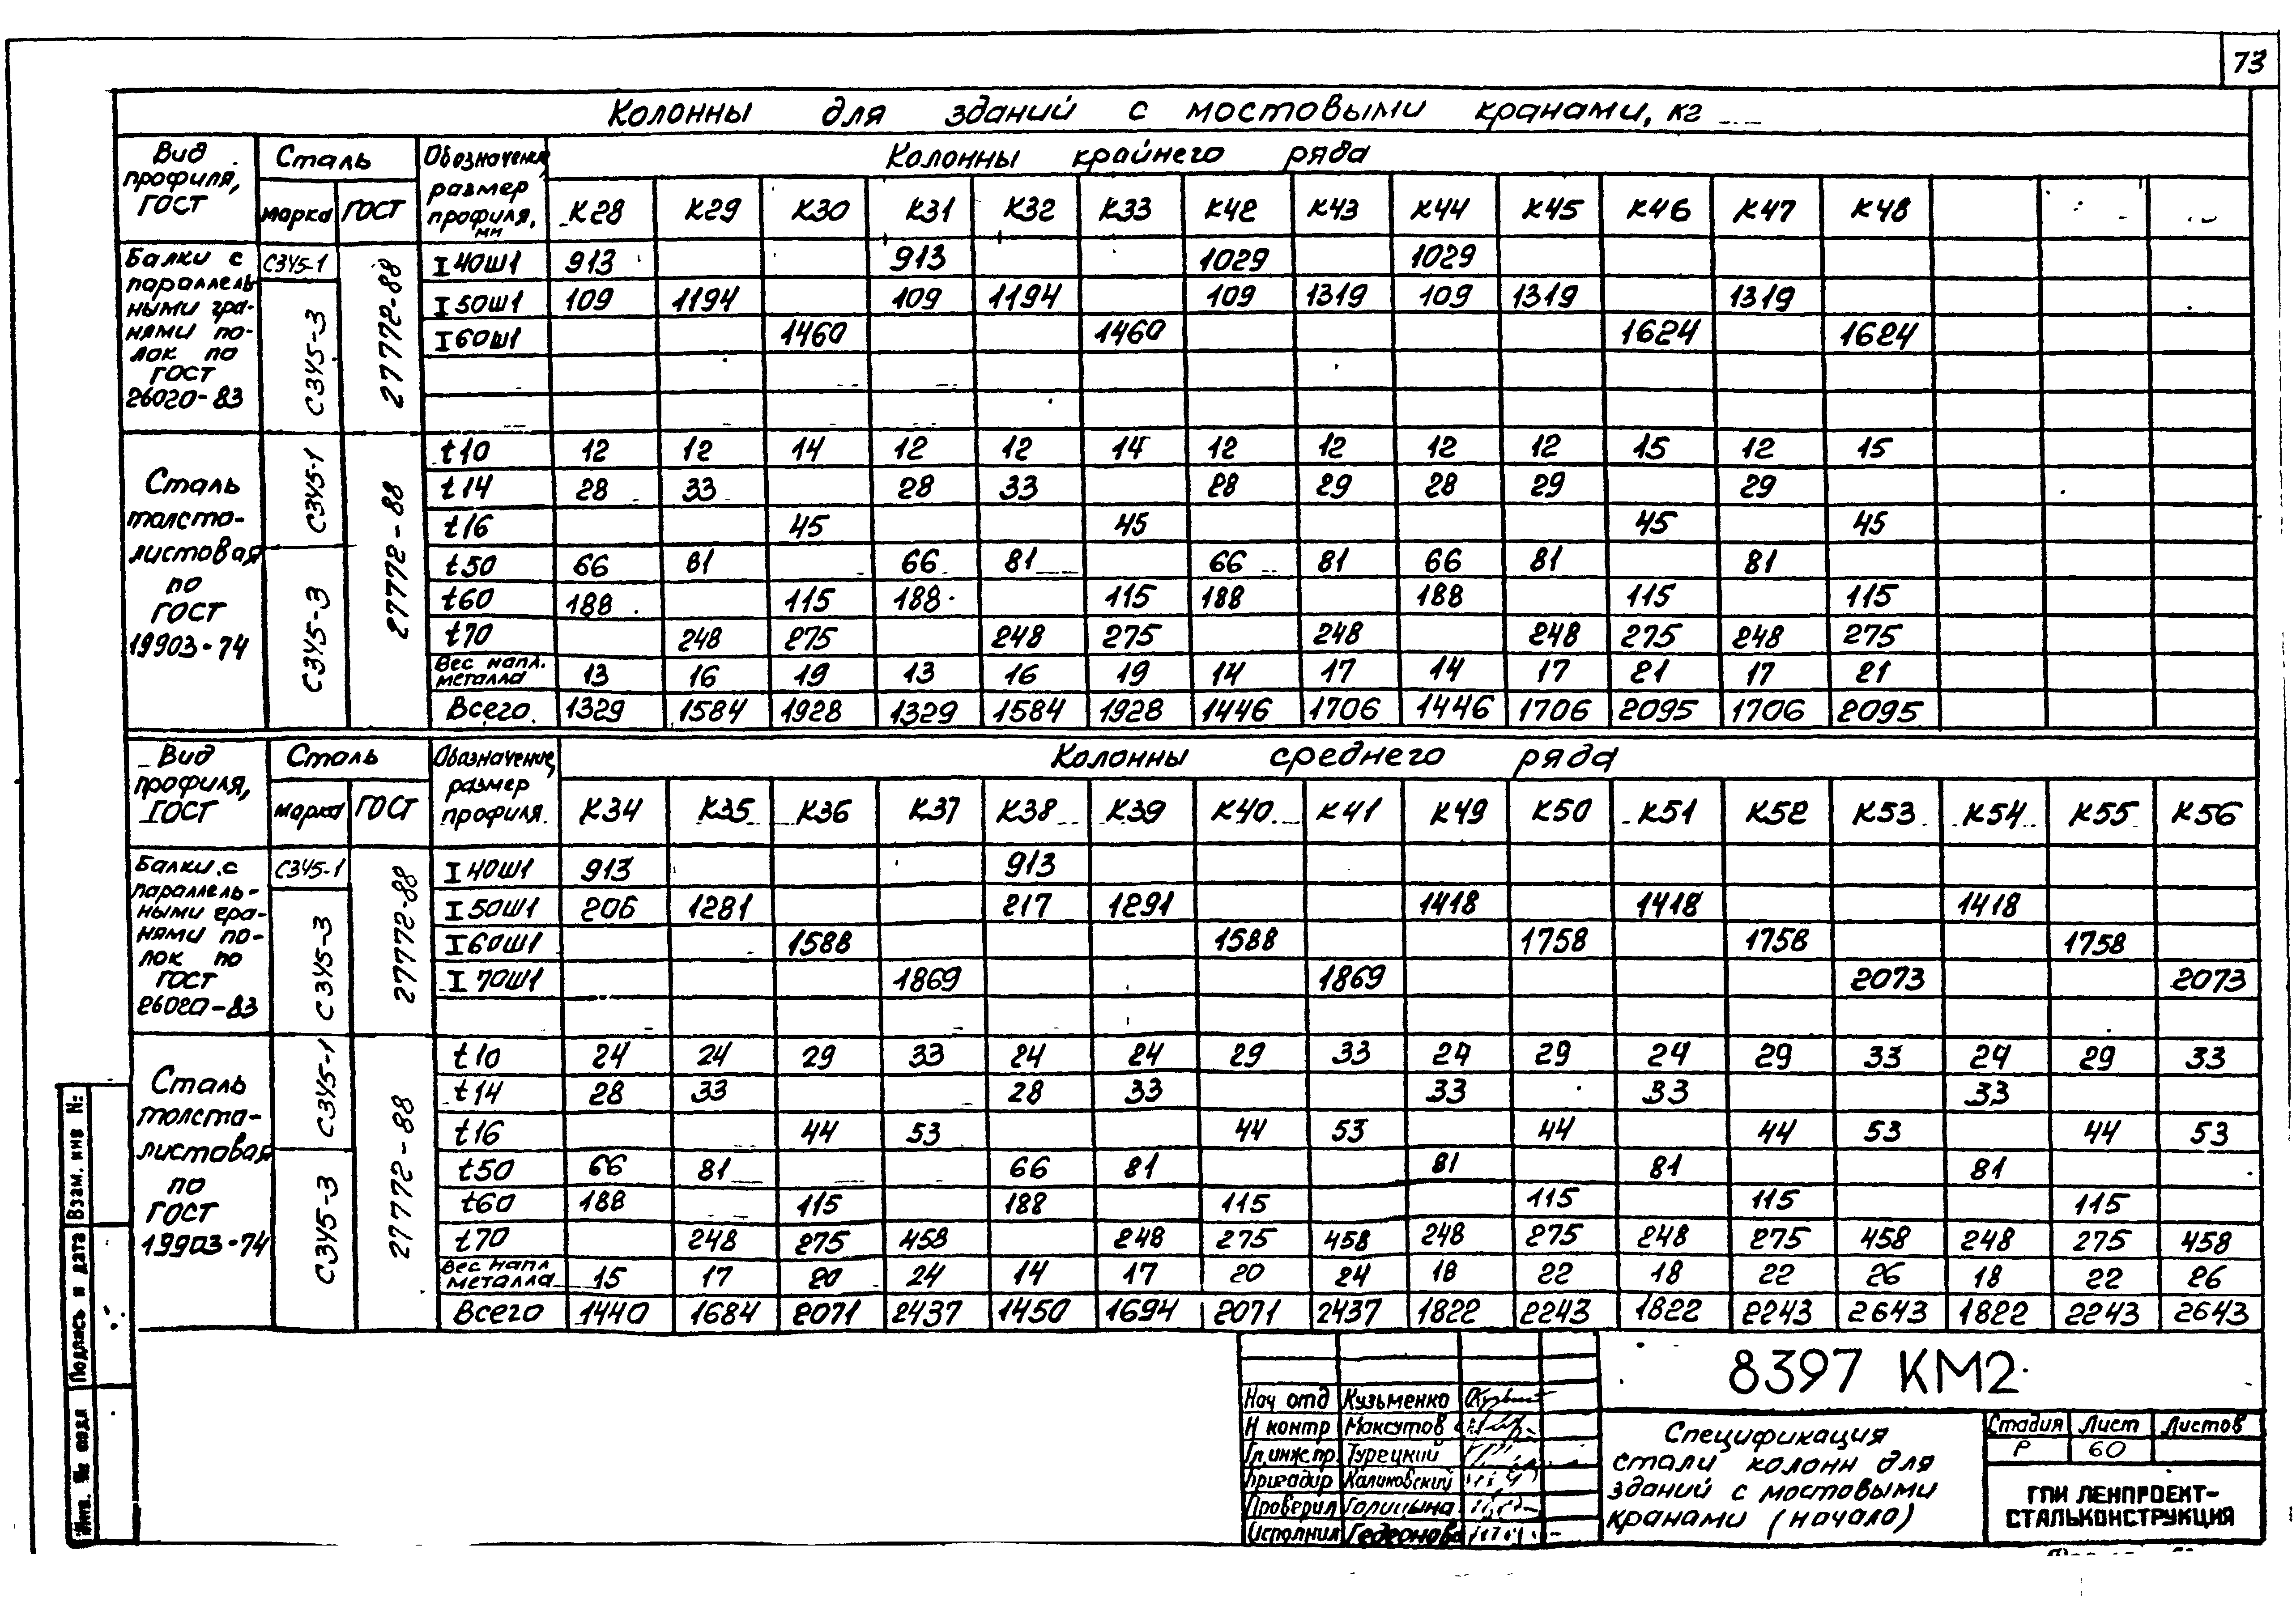 73
Колонны для зданий с мостовыми кранами, кг
Вид профиля, ГОСТ Сталь Обозначение, размер профиля, мм Колонны крайнего ряда
марка ГОСТ К28 К29 К30 К31 К32 К33 К42 К43 К44 К45 К46 К47 К48
Балки с параллельными гранями полок по ГОСТ 26020-83
С345-1
С345-3
27772-88
I 40Ш1 913 913 1029 1029
I 50Ш1 109 1194 109 1194 109 1319 109 1319 1319
I 60Ш1 1460 1460 1624 1624
Сталь толстолистовая по ГОСТ 19903-74
С345-1
С345-3
27772-88
t10 12 12 14 12 12 14 12 12 12 12 15 12 15
t14 28 33 28 33 28 29 28 29 29
t16 45 45 45 45
t50 66 81 66 81 66 81 66 81 81
t60 188 115 188 115 188 188 115 115
t70 248 275 248 275 248 248 275 248 275
Вес напл. металла 13 16 19 13 16 19 14 17 14 17 21 17 21
Всего 1329 1584 1928 1329 1584 1928 1446 1706 1446 1706 2095 1706 2095
Вид профиля, ГОСТ Сталь Обозначение, размер профиля Колонны среднего ряда
марка ГОСТ К34 К35 К36 К37 К38 К39 К40 К41 К49 К50 К51 К52 К53 К54 К55 К56
Балки с параллельными гранями полок по ГОСТ 26020-83
С345-1
С345-3
27772-88
I 40Ш1 913 913
I 50Ш1 206 1281 217 1291 1418 1418 1418
I 60Ш1 1588 1588 1758 1758 1758
I 70Ш1 1869 1869 2073 2073
Сталь толсталистовая по ГОСТ 19903-74
С345-1
С345-3
27772-88
t10 24 24 29 33 24 24 29 33 24 29 24 29 33 24 29 33
t14 28 33 28 33 33 33 33
t16 44 53 44 53 44 44 53 44 53
t50 66 81 66 81 81 81 81
t60 188 115 188 115 115 115 115
t70 248 275 458 248 275 458 248 275 248 275 458 248 275 458
Вес напл металла 15 17 20 24 14 17 20 24 18 22 18 22 26 18 22 26
Всего 1440 1684 2071 2437 1450 1694 2071 2437 1822 2243 1822 2243 2643 1822 2243 2643
Взам. инв №
Подпись и дата
Инв. № подл
8397 КМ2
Нач отд Кузьменко
Н контр Максутов
Гл.инж.пр. Турецкий
Бригадир Калиновский
Проверил Голицына
Исполнил Гедеонова
Спецификация
стали колонн для
зданий с мостовыми
кранами (начало)
Стадия Лист Листов
Р 60
ГПИ ЛЕНПРОЕКТ-
СТАЛЬКОНСТРУКЦИЯ